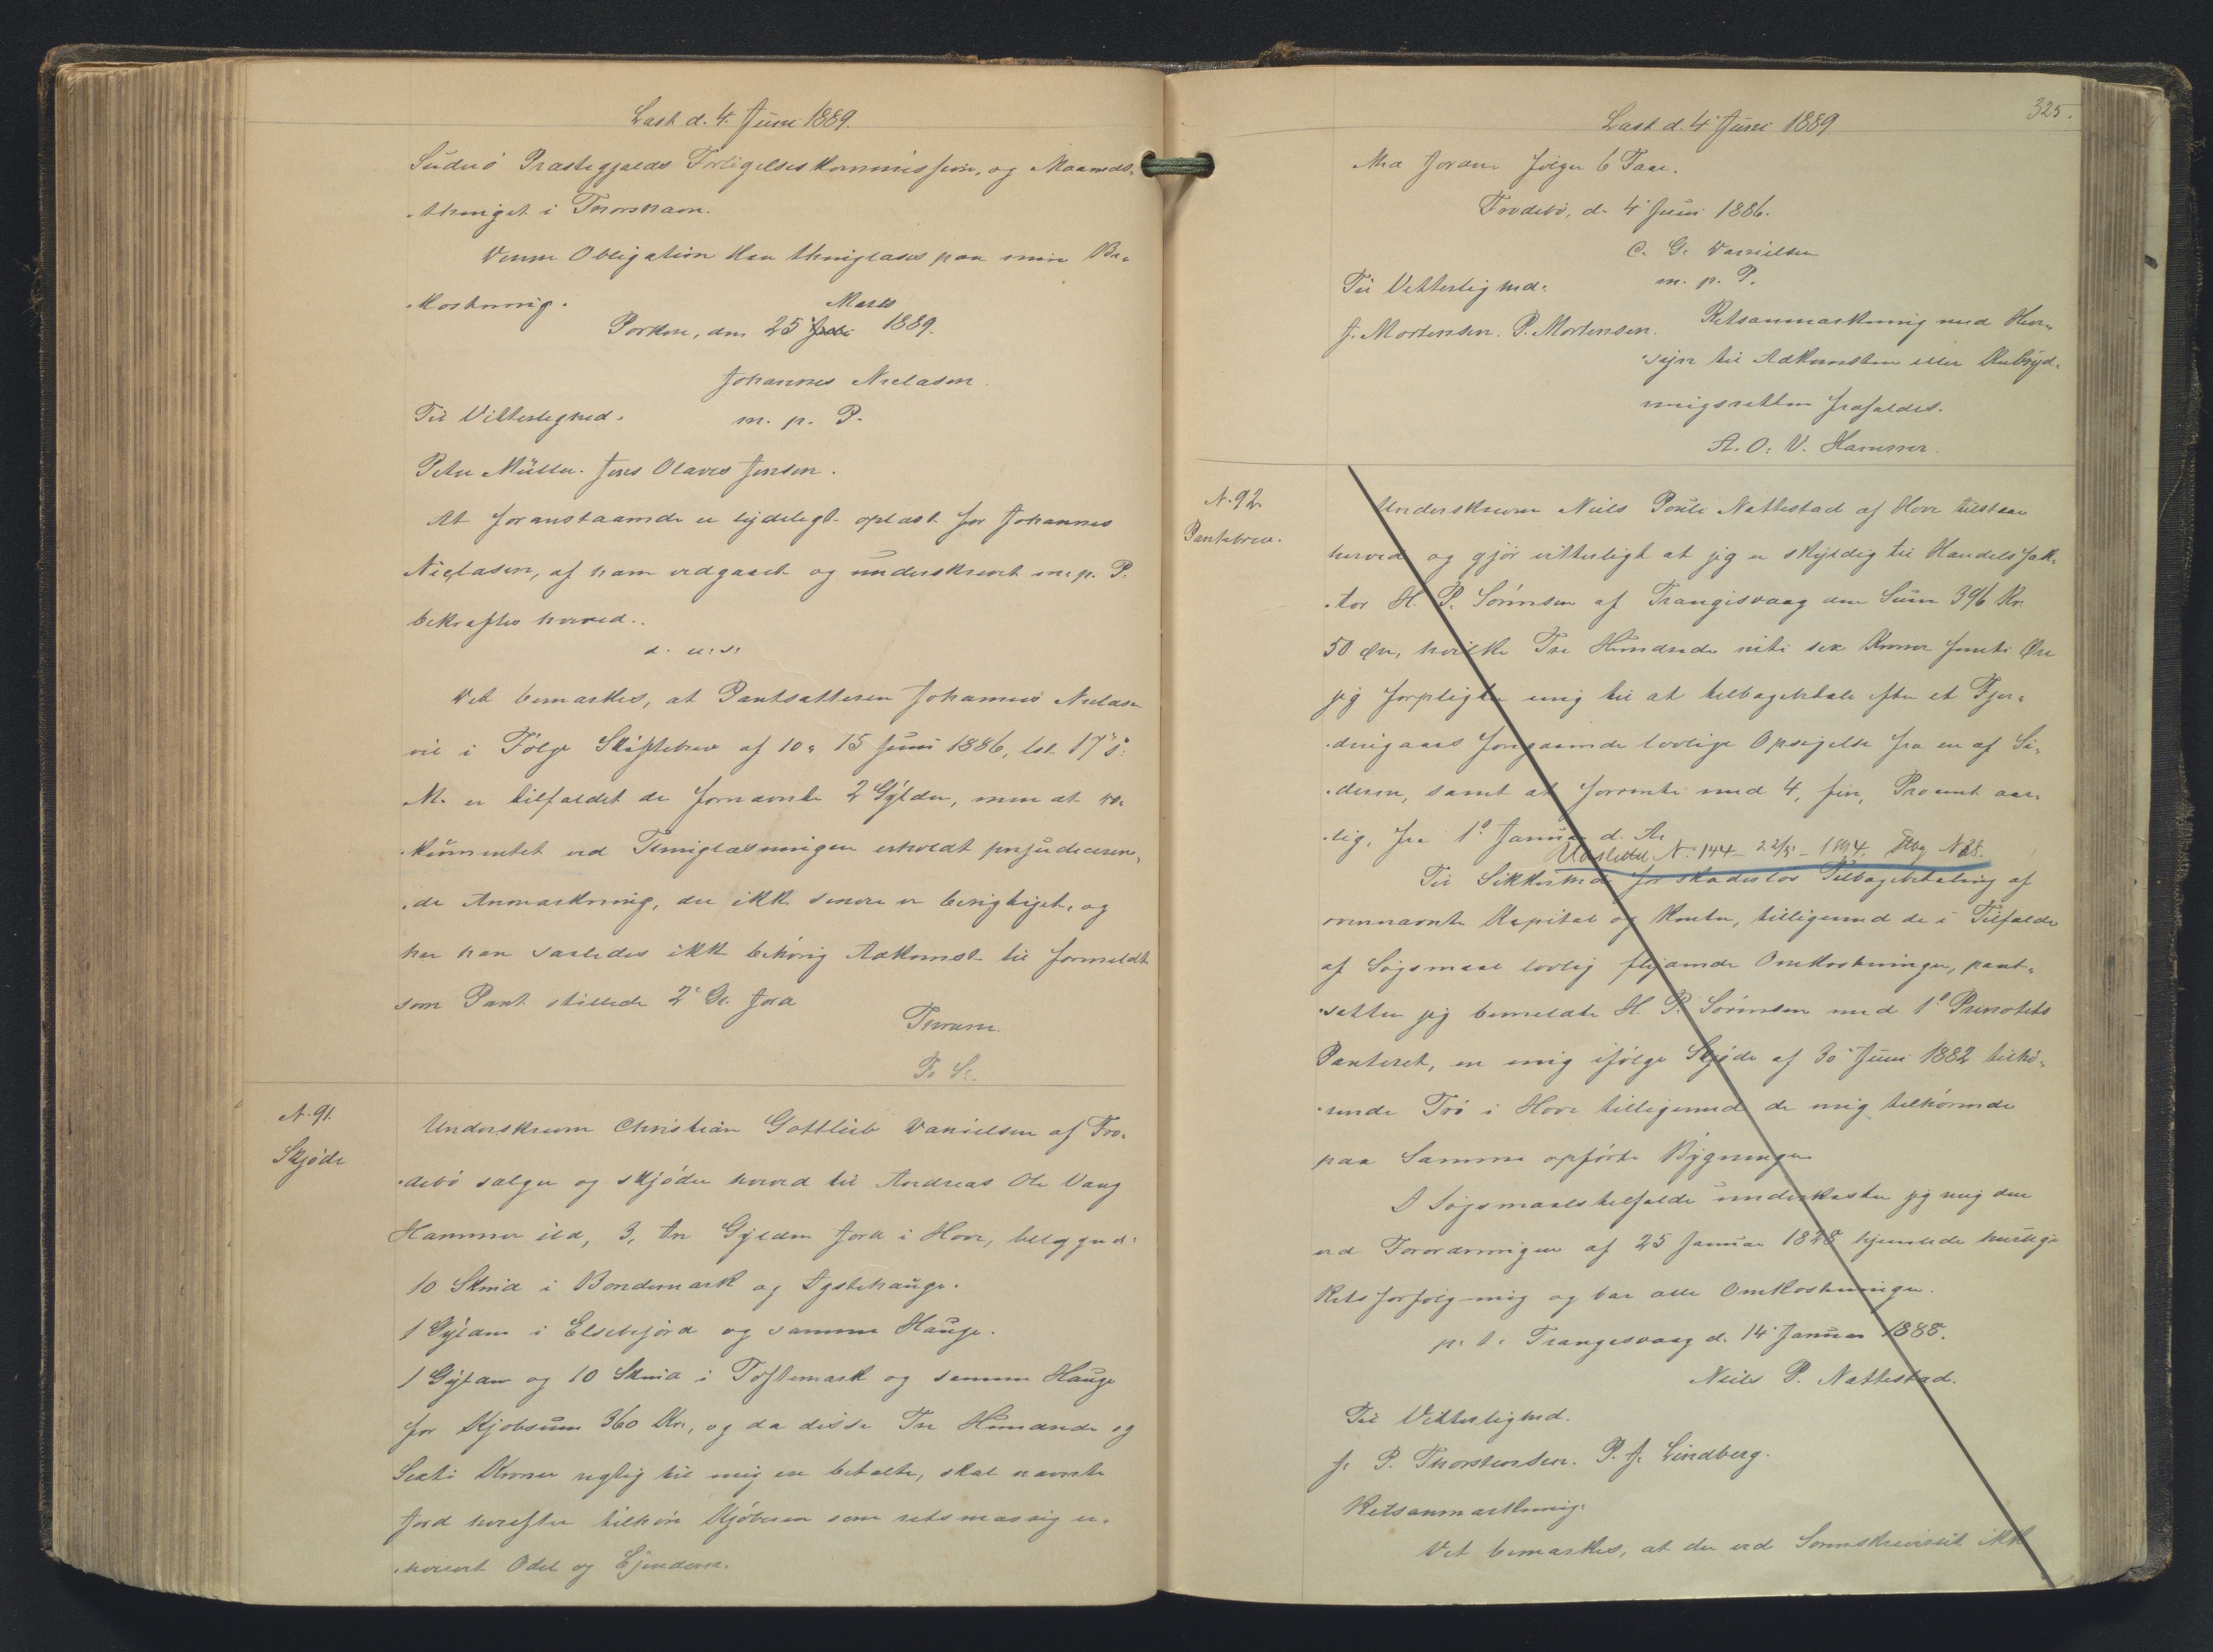 Læst d. 4. Juni 1889.
Suderø Præstegjælds Forligelseskommission, og Maaneds-
thinget i Thorshavn.
Denne Obligation kan thinglæses paa min Be-
kostning.
Marts
Porkere, den 25 Juli 1889.
Johannes Nielasen
Til Vitterlighed. m. p. P.
Peter Müller. Jens Olaves Jensen.
At foranstaaende er tydeligt oplæst for Johannes
Nielasen, af ham vedgaaet og underskrevet m. p. P.
bekræftes herved.
d. u. s.
Det bemærkes, at Pantsætteren Johannes Nielasen
vel i Følge Skiftebrev af 10 & 15 Juni 1886, lst. 17 s:
M. er tilfaldet de fornævnte 2 Gylden, men at Do-
kumentet ved Thinglæsningen erholdt præjudiceren-
de Anmærkning, der ikke senere er berigtiget, og
har han saaledes ikke behørig Adkomst til formeldte
som Pant stillede 2 Gl. Jord
Thrane.
Fo. S.
N. 91.
Skjøde
Underskreven Christian Gottlieb Danielsen af Fro-
debø sælger og skjøder herved til Andreas Ole Vang
Hammer ild, 3, tre Gylden Jord i Hove, beliggende:
10 Skind i Bondemark og Dystehauge.
1 Gylden i Elsebejord og samme Hauge.
1 Gylden og 10 Skind i Toftemark og samme Hauge
for Kjøbsum 360 Kr., og da disse Tre Hundrede og
Sexti Kroner rigtig til mig ere betalte, skal nævnte
Jord herefter tilhøre Kjøberen som retsmæssig er-
hvervet Odel og Ejendom.
325.
Læst d. 4 Juni 1889.
Med Jorden følger 6 Faar.
Frodebø, d. 4 Juni 1886.
C. G. Danielsen
Til Vitterlighed: m. p. P.
J. Mortensen. P. Mortensen. Retsanmærkning med Hen-
syn til Adkomsten eller Udbryd-
ningsretten frafaldes.
A. O. V. Hammer.
N. 92.
Pantebrev.
Underskreven Niels Pouli Nattestad af Hove tilstaar
herved og gjør vitterligt at jeg er skyldig til Handelsfak-
tor H. P. Sørensen af Trangisvaag den Sum 396 Kr.
50 Øre, hvilke Tre Hundrede niti sex Kroner femti Øre
jeg forpligter mig til at tilbagebetale efter et Fjer-
dingaars forgaaende lovlige Opsigelse fra en af Si-
derne, samt at forrente med 4, fire, Procent aar-
lig, fra 1. Januar d. A.
Udslettet N. 144 - 22/5 - 1894. Dbg N 28.
Til Sikkerhed for skadesløs Tilbagebetaling af
ovennævnte Kapital og Renter, tilligemed de i Tilfælde
af Søgsmaal lovlig flydende Omkostninger, pant-
sætter jeg bemeldte H. P. Sørensen med 1. Prioritets
Panteret, en mig ifølge Skjøde af 30 Juni 1882 tilhø-
rende Trø i Hove tilligemed de mig tilhørende
paa Samme opførte Bygninger
I Søgsmaalstilfælde underkaster jeg mig den
ved Forordningen af 25 Januar 1828 hjemlede hurtige
Retsforfølgning og bær alle Omkostninger.
p. t. Trangisvaag d. 14 Januar 1888.
Niels P. Nattestad.
Til Vitterlighed.
J. P. Thorstensen. P. J. Lindberg.
Retsanmærkning.
Det bemærkes, at der ved Sorenskriveriet ikke